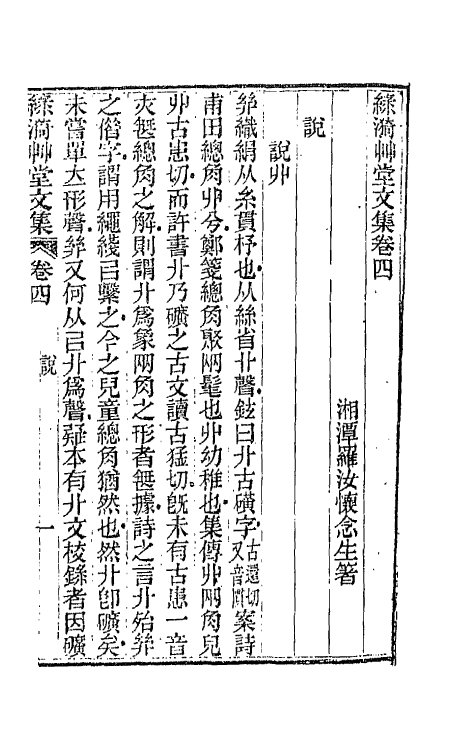 綠漪艸堂文集卷四
湘潭羅汝懷念生著
說
說丱
𢇇織絹从糸貫杼也从絲省丱聲鉉曰丱古磺字古還切又音關案詩
甫田總角丱兮鄭箋總角聚兩髦也丱幼稚也集傳丱兩角兒
丱古患切而許書丱乃礦之古文讀古猛切旣未有古患一音
亦無總角之解則謂丱爲象兩角之形者無據詩之言丱殆𢇇
之俗字謂用繩綫㠯繫之今之兒童總角猶然也然丱卽礦矣
未嘗單大形聲𢇇又何从㠯丱爲聲疑本有丱文校錄者因礦
綠漪艸堂文集
卷四
說
一